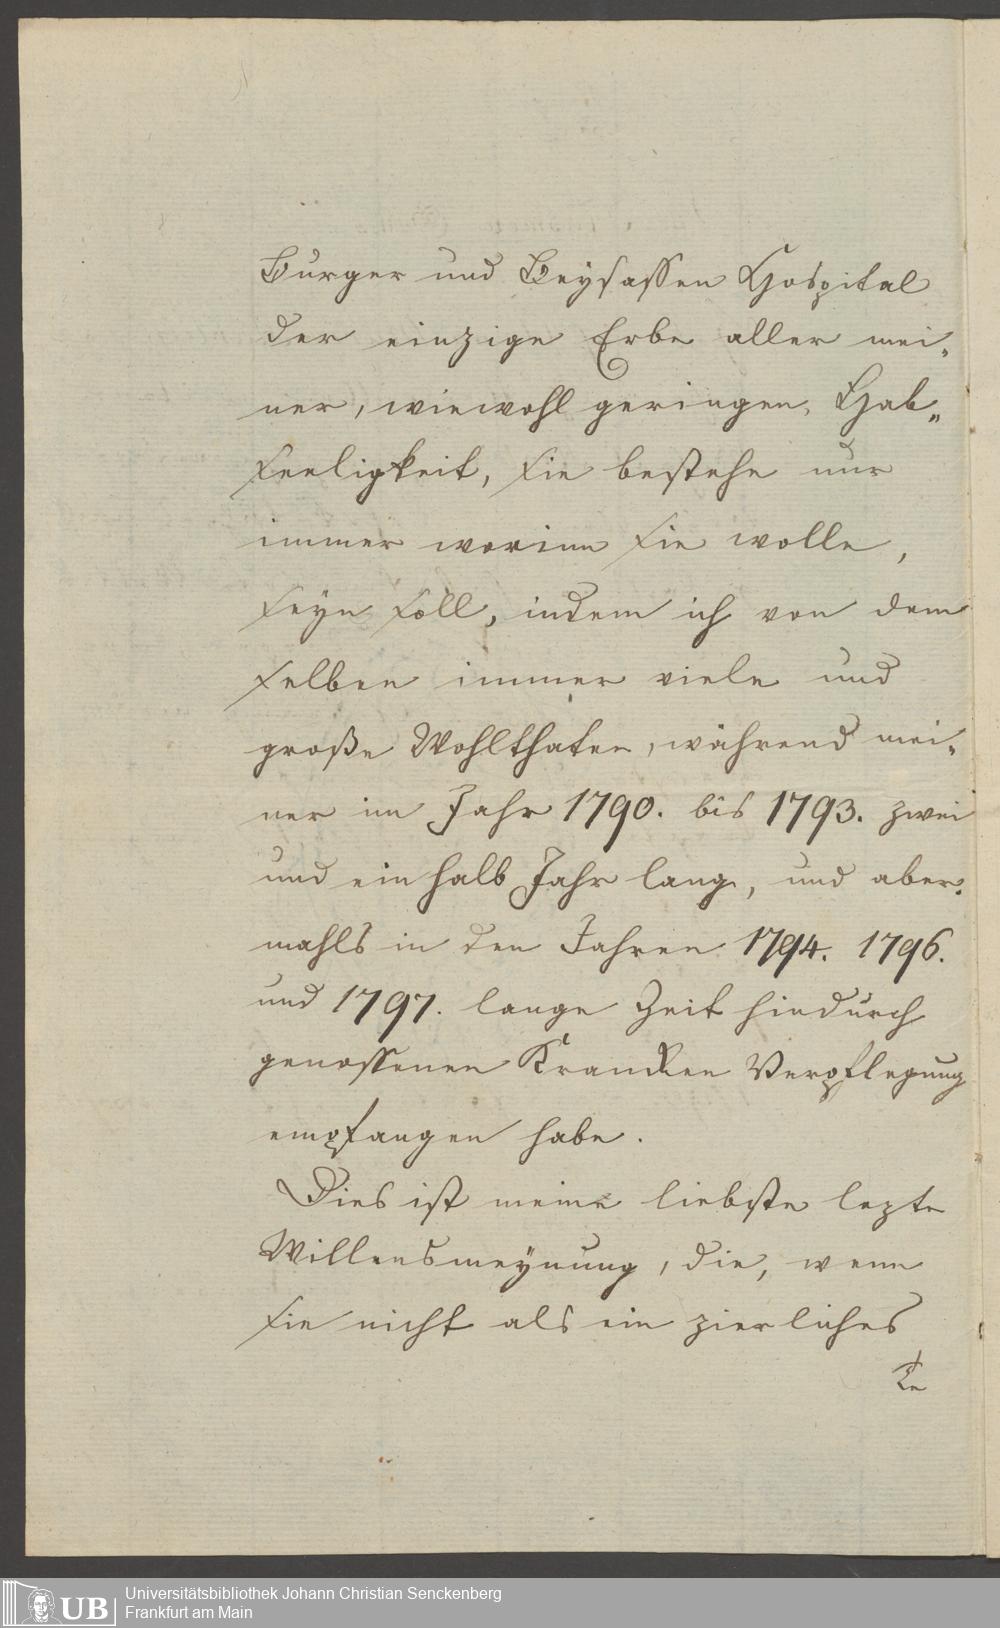 Burger und Beysassen Hospital
der einzige Erbe aller mei„
ner, wiewohl geringen, Hab„
seeligkeit, sie bestehe nur
immer worinn sie wolle,
seyn soll, indem ich von dem
selben immer viele und
große Wohlthaten, während mei„
ner im Jahr 1790. bis 1793. zwei
und ein halb Jahr lang, und aber„
mahls in den Jahren 1794. 1796.
und 1797. lange Zeit hindurch
genossenen Krancken Verpflegung
empfangen habe.
Dies ist meine liebste lezte
Willensmeynung, die, wenn
sie nicht als ein zierliches
Te
UB
Universitätsbibliothek Johann Christian Senckenberg
Frankfurt am Main